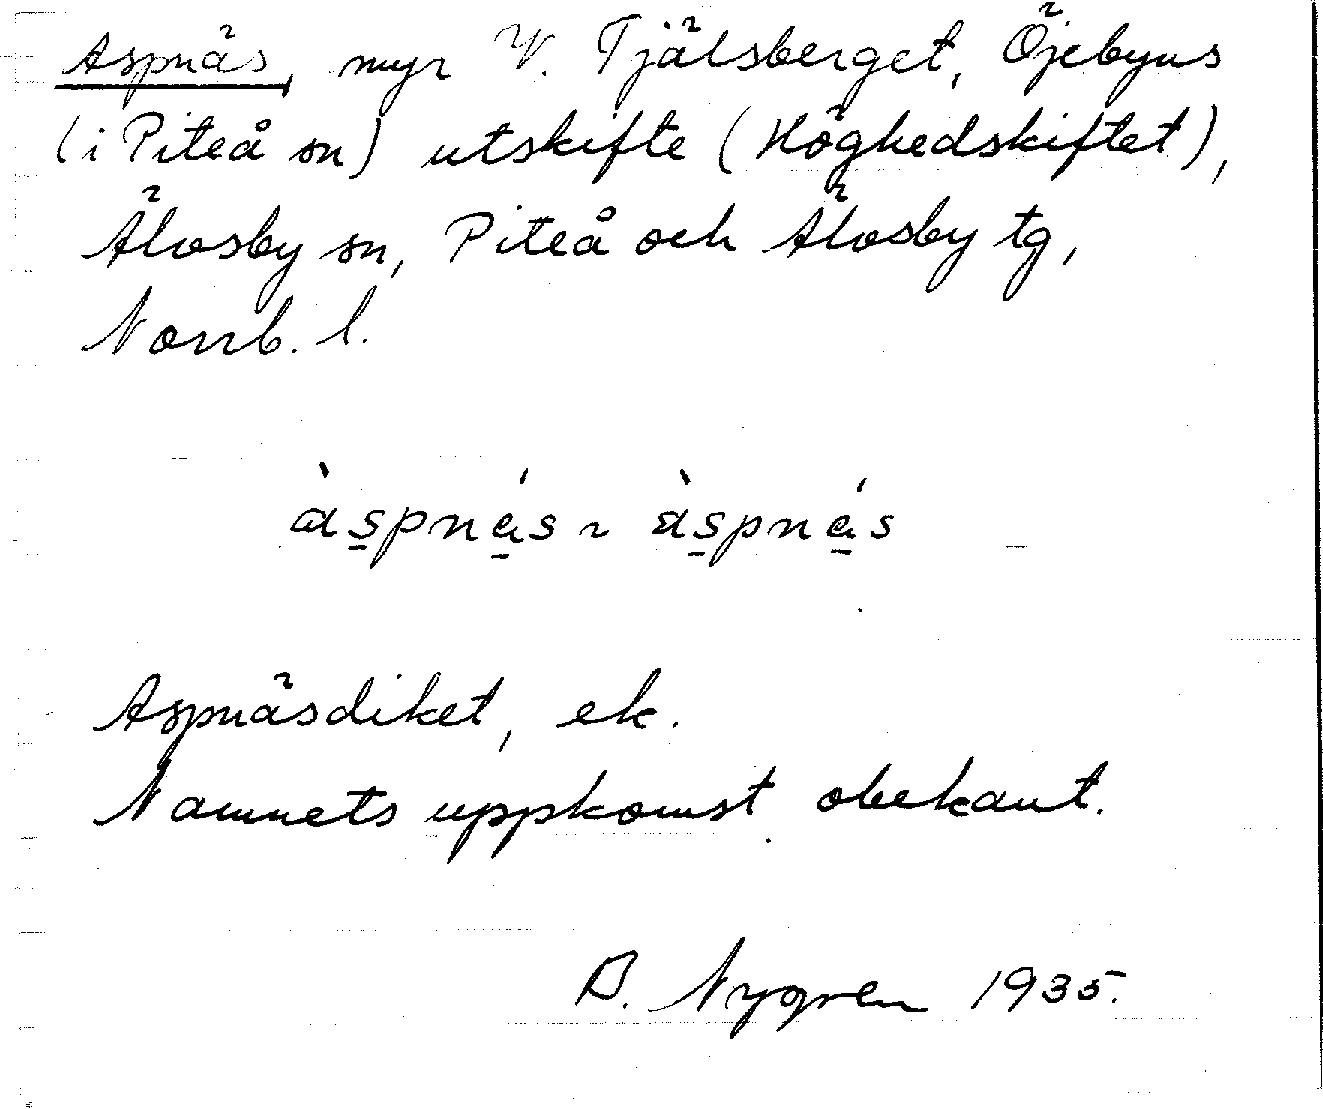 Aspnäs, myr V. Tjälsberget, Öjebyns
(i Piteå sn) utskifte (Höghedskiftet),
Älvsby sn, Piteå och Älvsby tg,
Norrb. l.
àspnás ~ àspnás
Aspnäsdiket, ek.
Namnets uppkomst obekant.
B. Nygren 1935.